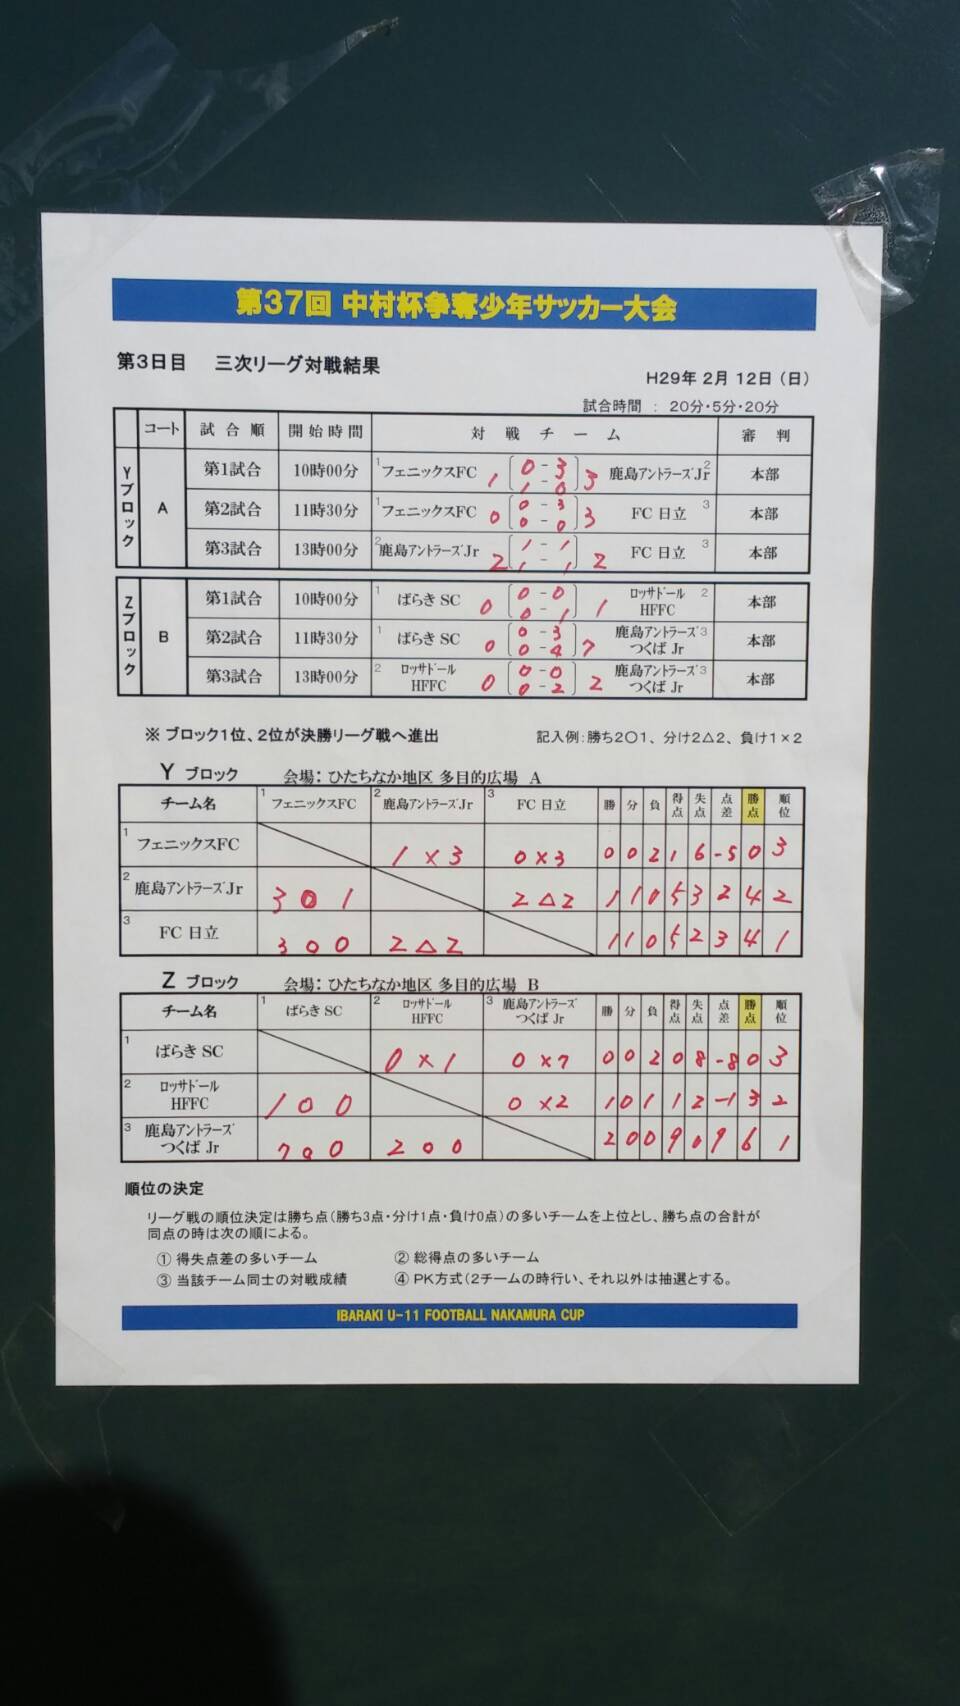 第37回 中村杯争奪少年サッカー大会
第3日目　三次リーグ対戦結果
H29年 2月 12日（日）
試合時間 ： 20分・5分・20分
コート 試合順 開始時間 対戦チーム 審判
Yブロック A
第1試合 10時00分 1 フェニックスFC 1 〔0-3 1-0〕 3 鹿島アントラーズJr 2 本部
第2試合 11時30分 1 フェニックスFC 0 〔0-3 0-0〕 3 FC 日立 3 本部
第3試合 13時00分 2 鹿島アントラーズJr 2 〔1-1 1-1〕 2 FC 日立 3 本部
Zブロック B
第1試合 10時00分 1 ばらき SC 0 〔0-0 0-1〕 1 ロッサドール HFFC 2 本部
第2試合 11時30分 1 ばらき SC 0 〔0-3 0-4〕 7 鹿島アントラーズ つくば Jr 3 本部
第3試合 13時00分 2 ロッサドール HFFC 0 〔0-0 0-2〕 2 鹿島アントラーズ つくば Jr 3 本部
※ ブロック1位、2位が決勝リーグ戦へ進出
記入例：勝ち2〇1、分け2△2、負け1×2
Y ブロック 会場： ひたちなか地区 多目的広場 A
チーム名 1 フェニックスFC 2 鹿島アントラーズJr 3 FC 日立 勝 分 負 得点 失点 点差 勝点 順位
1 フェニックスFC 1×3 0×3 0 0 2 1 6 -5 0 3
2 鹿島アントラーズJr 3〇1 2△2 1 1 0 5 3 2 4 2
3 FC 日立 3〇0 2△2 1 1 0 5 2 3 4 1
Z ブロック 会場： ひたちなか地区 多目的広場 B
チーム名 1 ばらき SC 2 ロッサドール HFFC 3 鹿島アントラーズ つくば Jr 勝 分 負 得点 失点 点差 勝点 順位
1 ばらき SC 0×1 0×7 0 0 2 0 8 -8 0 3
2 ロッサドール HFFC 1〇0 0×2 1 0 1 1 2 -1 3 2
3 鹿島アントラーズ つくば Jr 7〇0 2〇0 2 0 0 9 0 9 6 1
順位の決定
リーグ戦の順位決定は勝ち点（勝ち3点・分け1点・負け0点）の多いチームを上位とし、勝ち点の合計が
同点の時は次の順による。
① 得失点差の多いチーム ② 総得点の多いチーム
③ 当該チーム同士の対戦成績 ④ PK方式（2チームの時行い、それ以外は抽選とする。
IBARAKI U-11 FOOTBALL NAKAMURA CUP